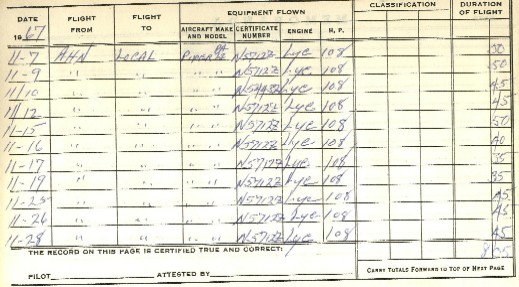 DATE FLIGHT FROM FLIGHT TO EQUIPMENT FLOWN CLASSIFICATION DURATION OF FLIGHT
1967 AIRCRAFT MAKE AND MODEL CERTIFICATE NUMBER ENGINE H. P.
11-7 AHN LOCAL PIPER PA N5712Z Lyc 108 50
11-9 " " " " N5712Z Lyc 108 50
11/10 " " " " Lyc 108 45
11/12 " " " " N5712Z Lyc 108 45
11-15 " " " " N5712Z Lyc 108 50
11-16 " " " " N5712Z Lyc 108 40
11-17 " " " " N5712Z Lyc 108
11-19 " " " " N5712Z Lyc 108 35
11-25 " " " " N5712Z Lyc 108 45
11-26 " " " " N5712Z Lyc 108 45
11-28 " " " " N5712Z Lyc 108 45
THE RECORD ON THIS PAGE IS CERTIFIED TRUE AND CORRECT:
PILOT ATTESTED BY CARRY TOTALS FORWARD TO TOP OF NEXT PAGE